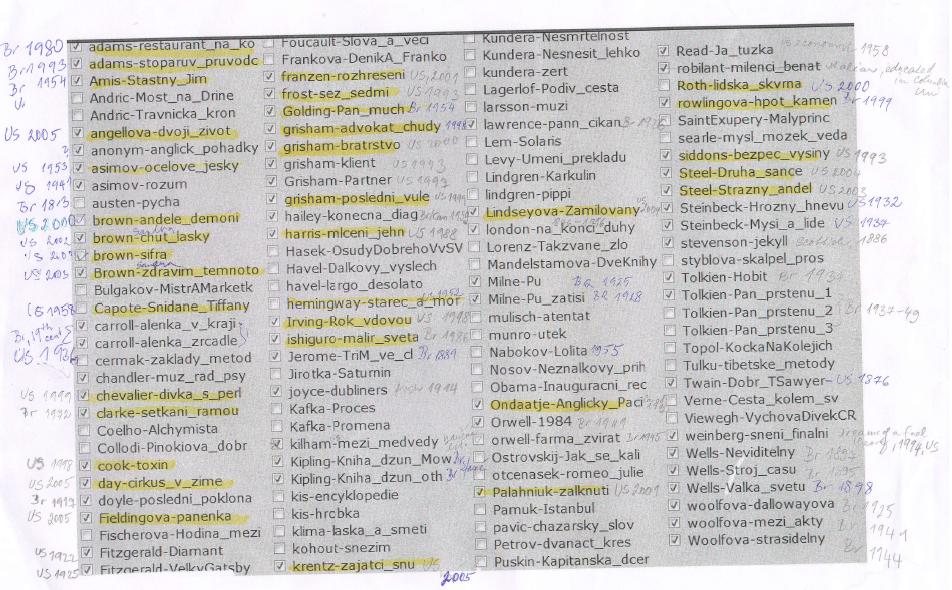 Br 1980 adams-restaurant_na_ko
Br 1993 adams-stoparuv_pruvodc
Br 1954 Amis-Stastny_Jim
Andric-Most_na_Drine
Andric-Travnicka_kron
US 2005 angellova-dvoji_zivot
anonym-anglick_pohadky
US 1953 asimov-ocelove_jesky
US 1941 asimov-rozum
Br 1813 austen-pycha
US 2000 brown-andele_demoni
US 2002 brown-chut_lasky
brown-sifra
US 2003 Brown-zdravim_temnoto
Bulgakov-MistrAMarketk
US 1958 Capote-Snidane_Tiffany
Br, 19th carroll-alenka_v_kraji
carroll-alenka_zrcadle
cermak-zaklady_metod
chandler-muz_rad_psy
US 1999 chevalier-divka_s_perl
clarke-setkani_ramou
Coelho-Alchymista
Collodi-Pinokiova_dobr
US 1998 cook-toxin
US 2005 day-cirkus_v_zime
Br 1917 doyle-posledni_poklona
US 2005 Fieldingova-panenka
Fischerova-Hodina_mezi
US 1922 Fitzgerald-Diamant
US 1925 Fitzgerald-VelkyGatsby
Foucault-Slova_a_veci
Frankova-DenikA_Franko
franzen-rozhreseni US, 2001
frost-sez_sedmi US 1993
Golding-Pan_much Br 1954
grisham-advokat_chudy 1998
grisham-bratrstvo US 2000
grisham-klient US 1993
Grisham-Partner US 1997
grisham-posledni_vule US 1999
hailey-konecna_diag
harris-mlceni_jehn US 1988
Hasek-OsudyDobrehoVvSV
Havel-Dalkovy_vyslech
havel-largo_desolato
hemingway-starec_a_mor 1952
Irving-Rok_vdovou US 1998
ishiguro-malir_sveta Br 1986
Jerome-TriM_ve_cl Br 1889
Jirotka-Saturnin
joyce-dubliners 1914
Kafka-Proces
Kafka-Promena
kilham-mezi_medvedy
Kipling-Kniha_dzun_Mow
Kipling-Kniha_dzun_oth
kis-encyklopedie
kis-hrcbka
klima-laska_a_smeti
kohout-snezim
krentz-zajatci_snu US
2005
Kundera-Nesmrtelnost
Kundera-Nesnesit_lehko
kundera-zert
Lagerlof-Podiv_cesta
larsson-muzi
lawrence-pann_cikan
Lem-Solaris
Levy-Umeni_prekladu
Lindgren-Karkulin
lindgren-pippi
Lindseyova-Zamilovany
london-na_konci_duhy
Lorenz-Takzvane_zlo
Mandelstamova-DveKnihy
Milne-Pu BR 1925
Milne-Pu_zatisi BR 1928
mulisch-atentat
munro-utek
Nabokov-Lolita 1955
Nosov-Neznalkovy_prih
Obama-Inauguracni_rec
Ondaatje-Anglicky_Paci
Orwell-1984 Br 1949
orwell-farma_zvirat Br 1945
Ostrovskij-Jak_se_kali
otcenasek-romeo_julie
Palahniuk-zalknuti US 2001
Pamuk-Istanbul
pavic-chazarsky_slov
Petrov-dvanact_kres
Puskin-Kapitanska_dcer
Read-Ja_tuzka 1958
robilant-milenci_benat Italian, educated in Columbia Uni
Roth-lidska_skvrna US 2000
rowlingova-hpot_kamen Br 1997
SaintExupery-Malyprinc
searle-mysl_mozek_veda
siddons-bezpec_vysiny US 1993
Steel-Druha_sance US 2004
Steel-Strazny_andel US 2003
Steinbeck-Hrozny_hnevu US 1932
Steinbeck-Mysi_a_lide US 1937
stevenson-jekyll 1886
styblova-skalpel_pros
Tolkien-Hobit Br 193
Tolkien-Pan_prstenu_1
Tolkien-Pan_prstenu_2 Br 1937-49
Tolkien-Pan_prstenu_3
Topol-KockaNaKolejich
Tulku-tibetske_metody
Twain-Dobr_TSawyer US 1876
Verne-Cesta_kolem_sv
Viewegh-VychovaDivekCR
weinberg-sneni_finalni Dreams of a final theory, 1994, US
Wells-Neviditelny Br 1897
Wells-Stroj_casu Br 1895
Wells-Valka_svetu Br 1898
woolfova-dallowayova Br 1925
woolfova-mezi_akty Br 1941
Woolfova-strasidelny Br 1944